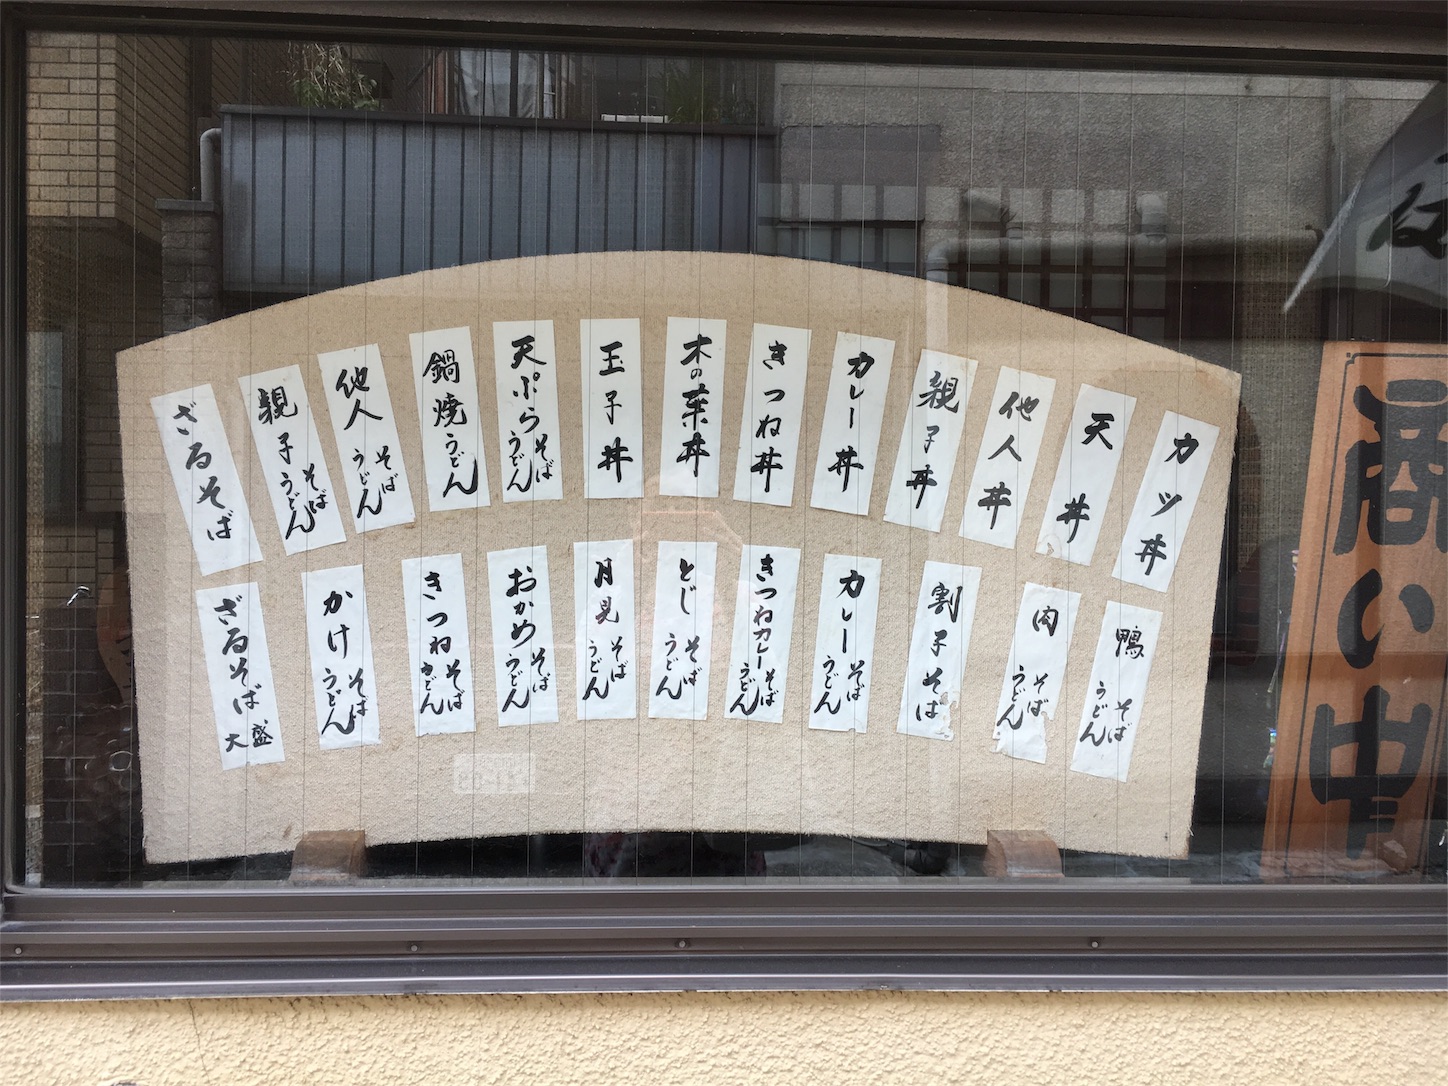 カツ丼
天丼
他人丼
親子丼
カレー丼
きつね丼
木の葉丼
玉子丼
天ぷらそばうどん
鍋焼うどん
他人そばうどん
親子そばうどん
ざるそば
鴨そばうどん
肉そばうどん
割子そば
カレーそばうどん
きつねカレーそばうどん
とじそばうどん
月見そばうどん
おかめそばうどん
きつねそばうどん
かけそばうどん
ざるそば大盛
商い中